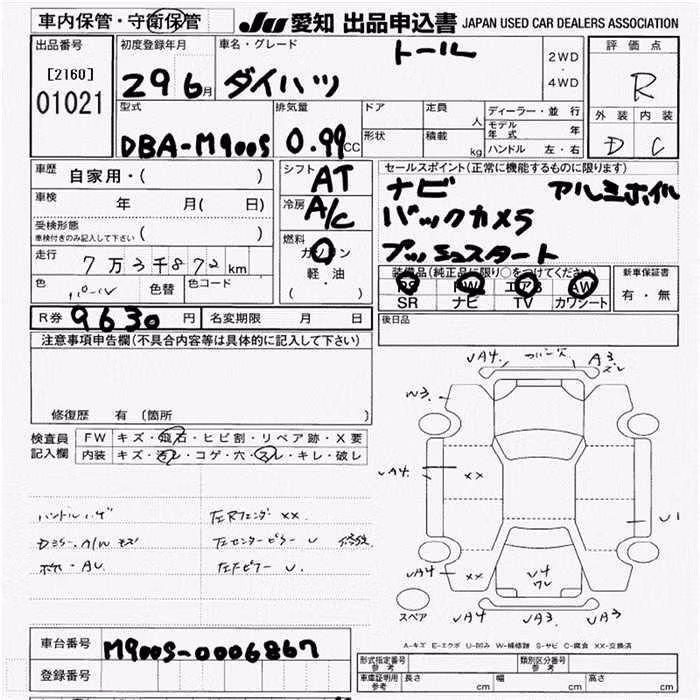 車内保管・守衛保管
JU 愛知 出品申込書 JAPAN USED CAR DEALERS ASSOCIATION
出品番号
[2160]
01021
初度登録年月
29 6月
車名・グレード
トール
ダイハツ
2WD
・
4WD
評価点
R
外装 内装
D C
型式
DBA-M900S
排気量
0.99CC
ドア
形状
定員
人
積載
kg
ディーラー・並行
モデル年式 年
ハンドル 左・右
車歴
自家用・( )
車検
年 月( 日)
受検形態
車検付きのみ記入して下さい ( )
走行
7万3千872km
色
パール
色替
色コード
シフト
AT
冷房
A/C
燃料
ガソリン
軽・油
( )
セールスポイント(正常に機能するものに限ります)
ナビ アルミホイル
バックカメラ
プッシュスタート
装備品(純正品に限り○をつけてください)
PS PW エアB AW
SR ナビ TV カワシート
新車保証書
有・無
R券 9630円
名変期限 月 日
後日品
注意事項申告欄(不具合内容等は具体的に記入して下さい)
修復歴 有 〔箇所 〕
検査員記入欄
FW キズ・飛石・ヒビ割・リペア跡・X要
内装 キズ・汚レ・コゲ・穴・スレ・キレ・破レ
ハンドルハゲ
Dミラー、A/W キズ
ボディ・AU
左Rフェンダ XX
左センターピラー U 修復
左Fピラー U
VA4 A3
スレ
W3
VA4 XX
U1
VA4 XX
U4
VA4 VA3 VA3
スペア
A-キズ E-エクボ U-凹み W-補修跡 S-サビ C-腐食 XX-交換済
車台番号
M900S-0006867
登録番号
形式指定番号 参考
類別区分番号 参考
車庫証明用 参考
長さ cm
幅 cm
高さ cm